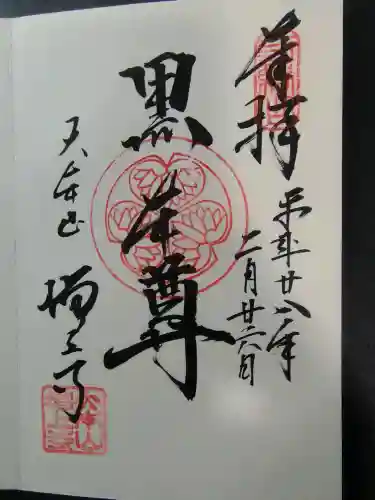 奉拝
平成廿八年
二月廿六日
黒本尊
大本山
増上寺